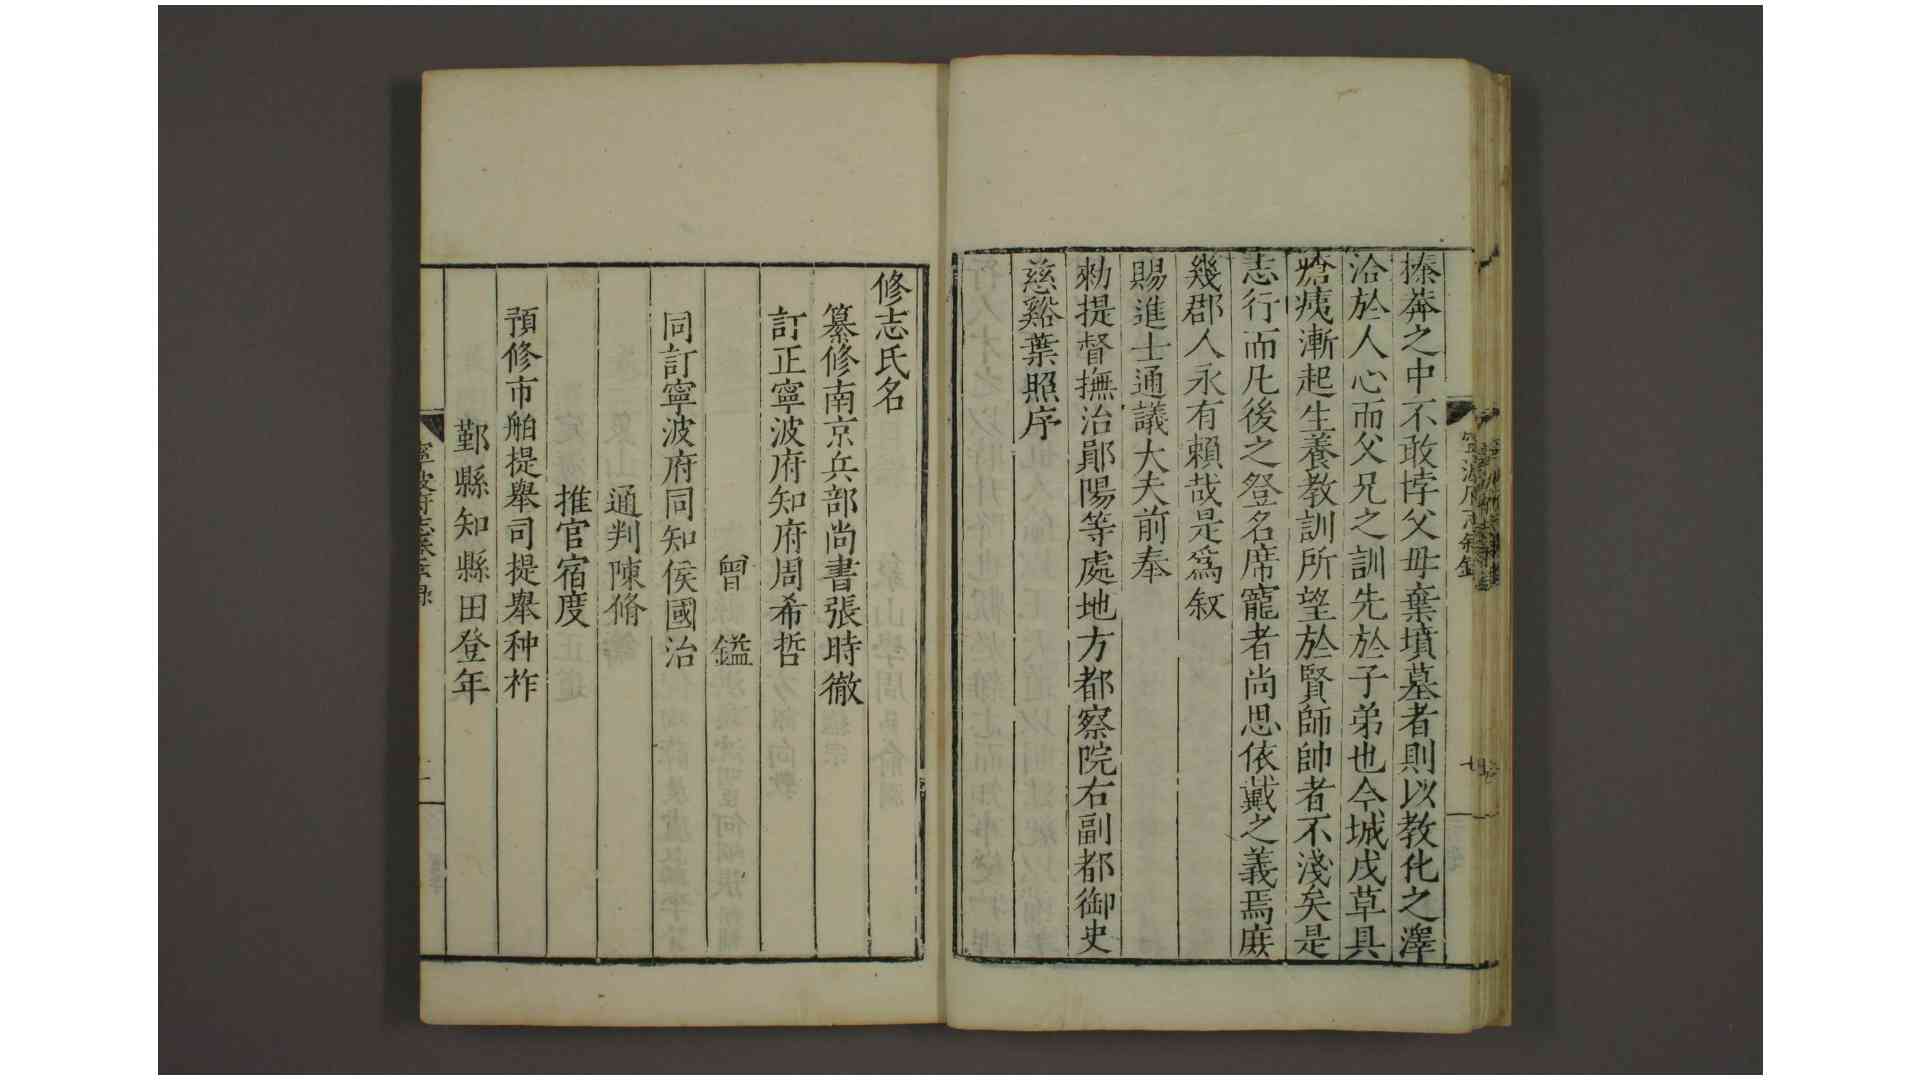 榛莽之中不敢悖父母棄墳墓者則以教化之澤
洽於人心而父兄之訓先於子弟也今城戍草具
瘡痍漸起生養教訓所望於賢師帥者不淺矣是
志行而凡後之登名席寵者尚思依戴之義焉庶
幾郡人永有賴哉是爲叙
賜進士通議大夫前奉
勑提督撫治鄖陽等處地方都察院右副都御史
慈谿葉照序
修志氏名
纂修南京兵部尚書張時徹
訂正寧波府知府周希哲
曾鎰
同訂寧波府同知侯國治
通判陳脩
推官宿度
預修市舶提舉司提舉种祚
鄞縣知縣田登年